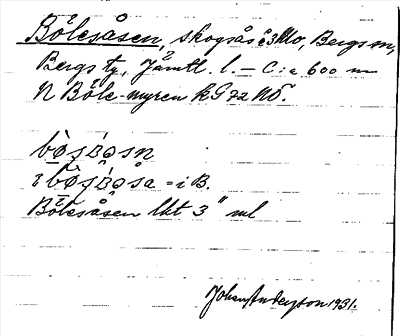 Bölesåsen, skogsås i 3 Mo, Bergs sn,
Bergs tg, Jämtl. l. – C:a 600 m
N Böle-myren kG 72 NÖ.
bø̀sɓo̜sn
i bø̀sɓo̜sa = i B.
Bölesåsen lkt 3" ml
Johan Anderzon 1931.